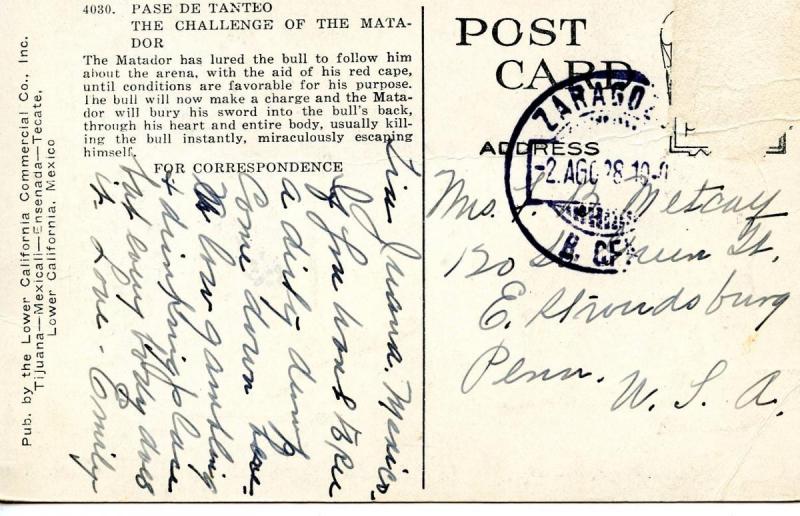 4030. PASE DE TANTEO
THE CHALLENGE OF THE MATA-
DOR
The Matador has lured the bull to follow him
about the arena, with the aid of his red cape,
until conditions are favorable for his purpose.
The bull will now make a charge and the Mata-
dor will bury his sword into the bull's back,
through his heart and entire body, usually kill-
ing the bull instantly, miraculously escaping
himself.
FOR CORRESPONDENCE
Pub. by the Lower California Commercial Co., Inc.
Tijuana—Mexicali—Ensenada—Tecate,
Lower California, Mexico
Tia Juana. Mexico.
If you want to see
a dirty dump
Come down here.
low gambling
+ drinking place
but every body does
it. Love - Emily
POST
CARD
ADDRESS
ZARAGOZ
2. AGO 28. 10
B. CFA
Mrs. Metcay
120 Green St.
E. Stroudsburg
Penn. U. S. A.